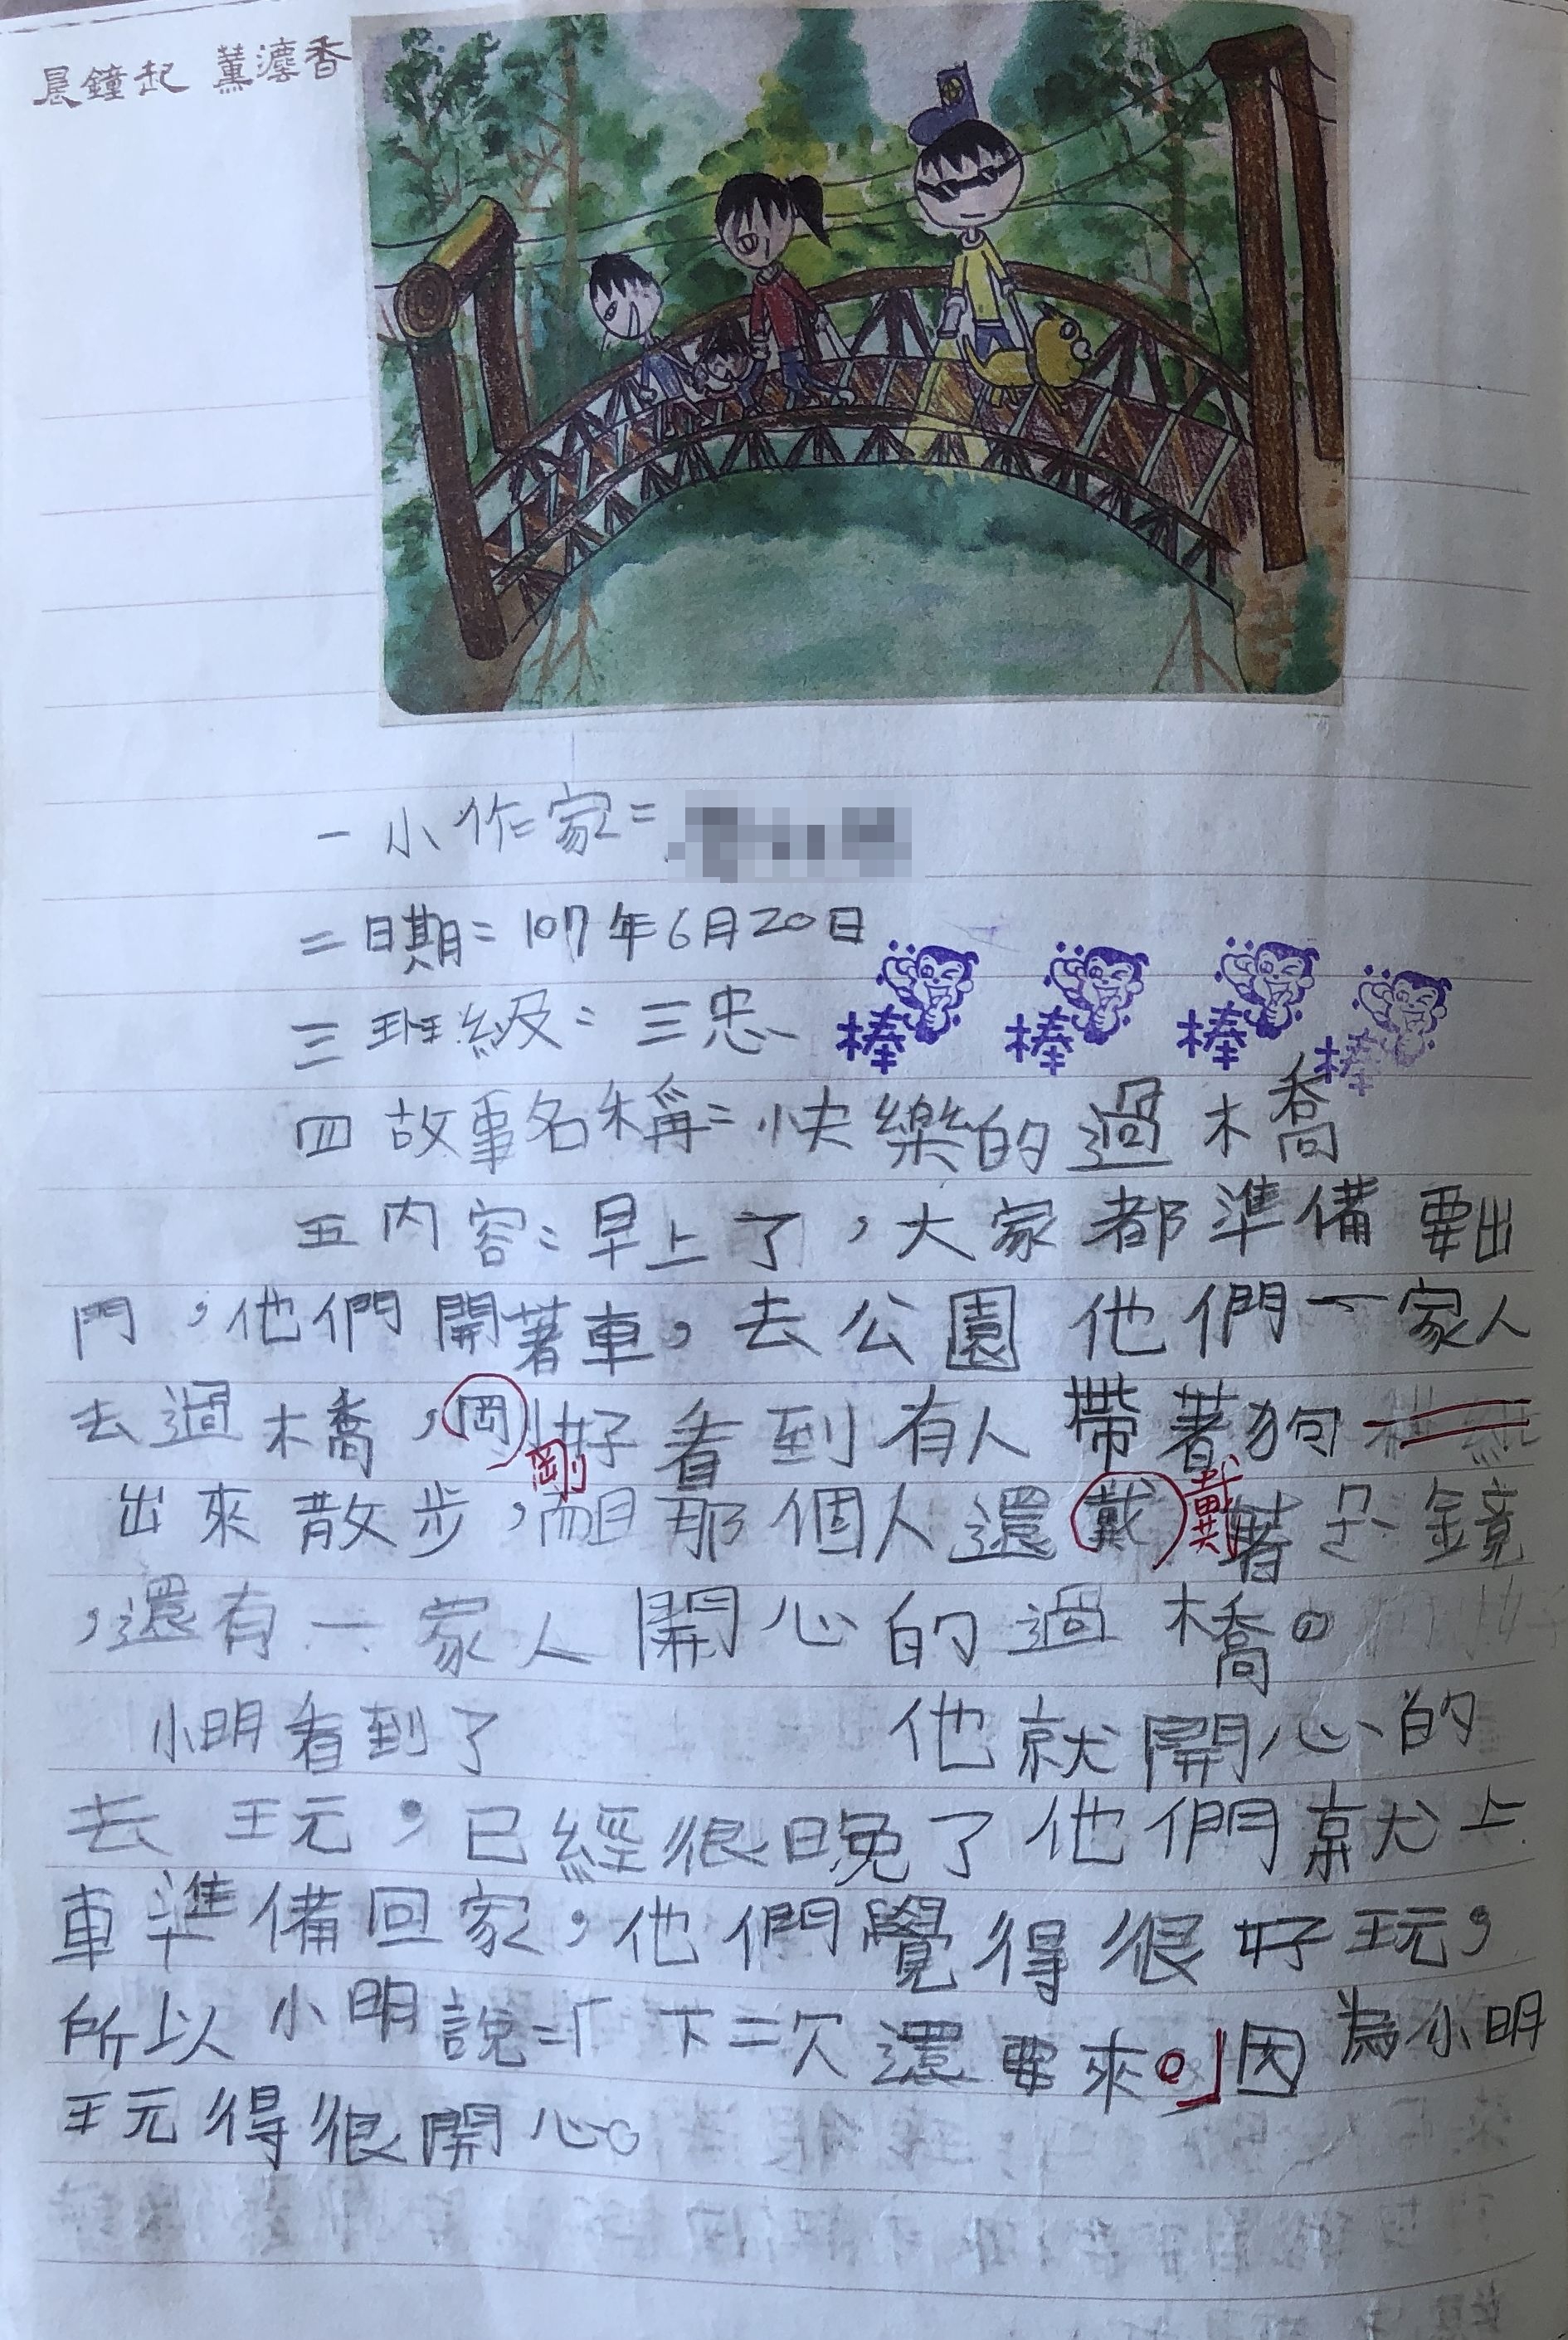 晨鐘起 薰瀀香
一 小作家=
二 日期= 107年6月20日
三 班級= 三忠
棒 棒 棒 棒
四 故事名稱= 快樂的過橋
五 內容: 早上了,大家都準備要出
門,他們開著車,去公園 他們一家人
去過橋,剛好看到有人帶著狗
剛
出來散步,而且那個人還戴著 鏡
戴
,還有一家人開心的過橋。
小明看到了 他就開心的
去玩,已經很晚了他們就上
車準備回家,他們覺得很好玩,
所以小明說=「下二次還要來。」因為小明
玩得很開心。